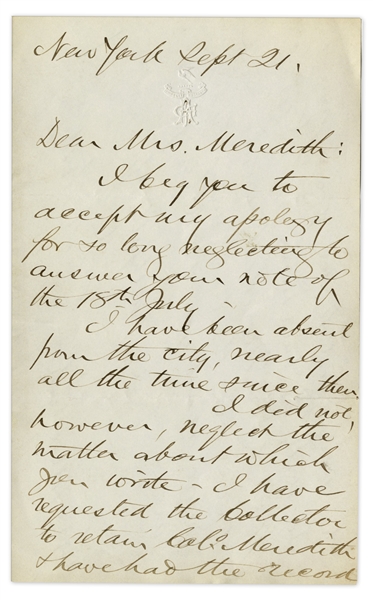 New York Sept 21.
Dear Mrs. Meredith:
I beg you to
accept my apology
for so long neglecting to
answer your note of
the 18th July -
I have been absent
from the city, nearly
all the time since then.
I did not,
however, neglect the
matter about which
you write - I have
requested the Collector
to retain Col. Meredith
& have had the record